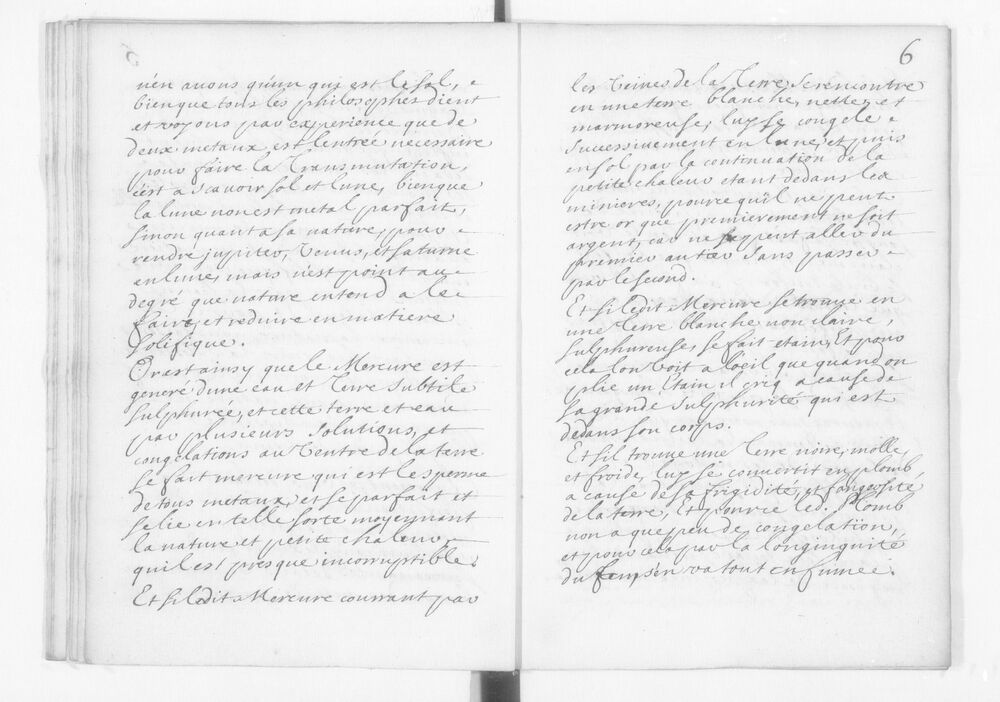 n'en avons qu'un qui est le sol,
bien que tous les philosophes dient
et voyons par experience que de
deux metaux est l'entrée necessaire
pour faire la Transmutation,
c'est a scavoir sol et lune, bien que
la lune non est metal parfait,
sinon quant a sa nature, pour
rendre jupiter, venus, et saturne
en lune, mais n'est point au
degré que nature entend a le
faire, et reduire en matiere
solifique.
Or est ainsy que le Mercure est
generé d'une eau et Terre subtile
sulphurée, et cette terre et eau
par plusieurs solutions, et
congelations au Ventre de la terre
se fait mercure qui est le sperme
de tous metaux, et se parfait et
se lie en telle sorte moyennant
la nature et petite chaleur
qu'il est presque incorruptible.
Et si ledit Mercure courrant par
6
les Veines de la Terre, se rencontre
en une terre blanche, nette, et
marmoreuse, luy se congele
successivement en lune, et puis
en sol, par la continuation de la
petite chaleur etant dedans les
minieres, pource qu'il ne peut
estre or que premierement ne soit
argent, car ne peut aller du
premier au tier sans passer
par le second.
Et si ledit Mercure se trouve en
une Terre blanche non claire,
sulphureuse, se fait etain, Et pour
cela l'on voit a l'oeil que quand on
plie un Etain il criq a cause de
sa grande sulphurité qui est
dedans son corps.
Et s'il trouve une Terre noire, molle,
et froide, luy se convertit en plomb,
a cause de sa frigidité, et fangosité
de la terre, Et pource led. Plomb
non a que peu de congelation,
et pour cela par la longinquité
du s'en va tout en fumée.